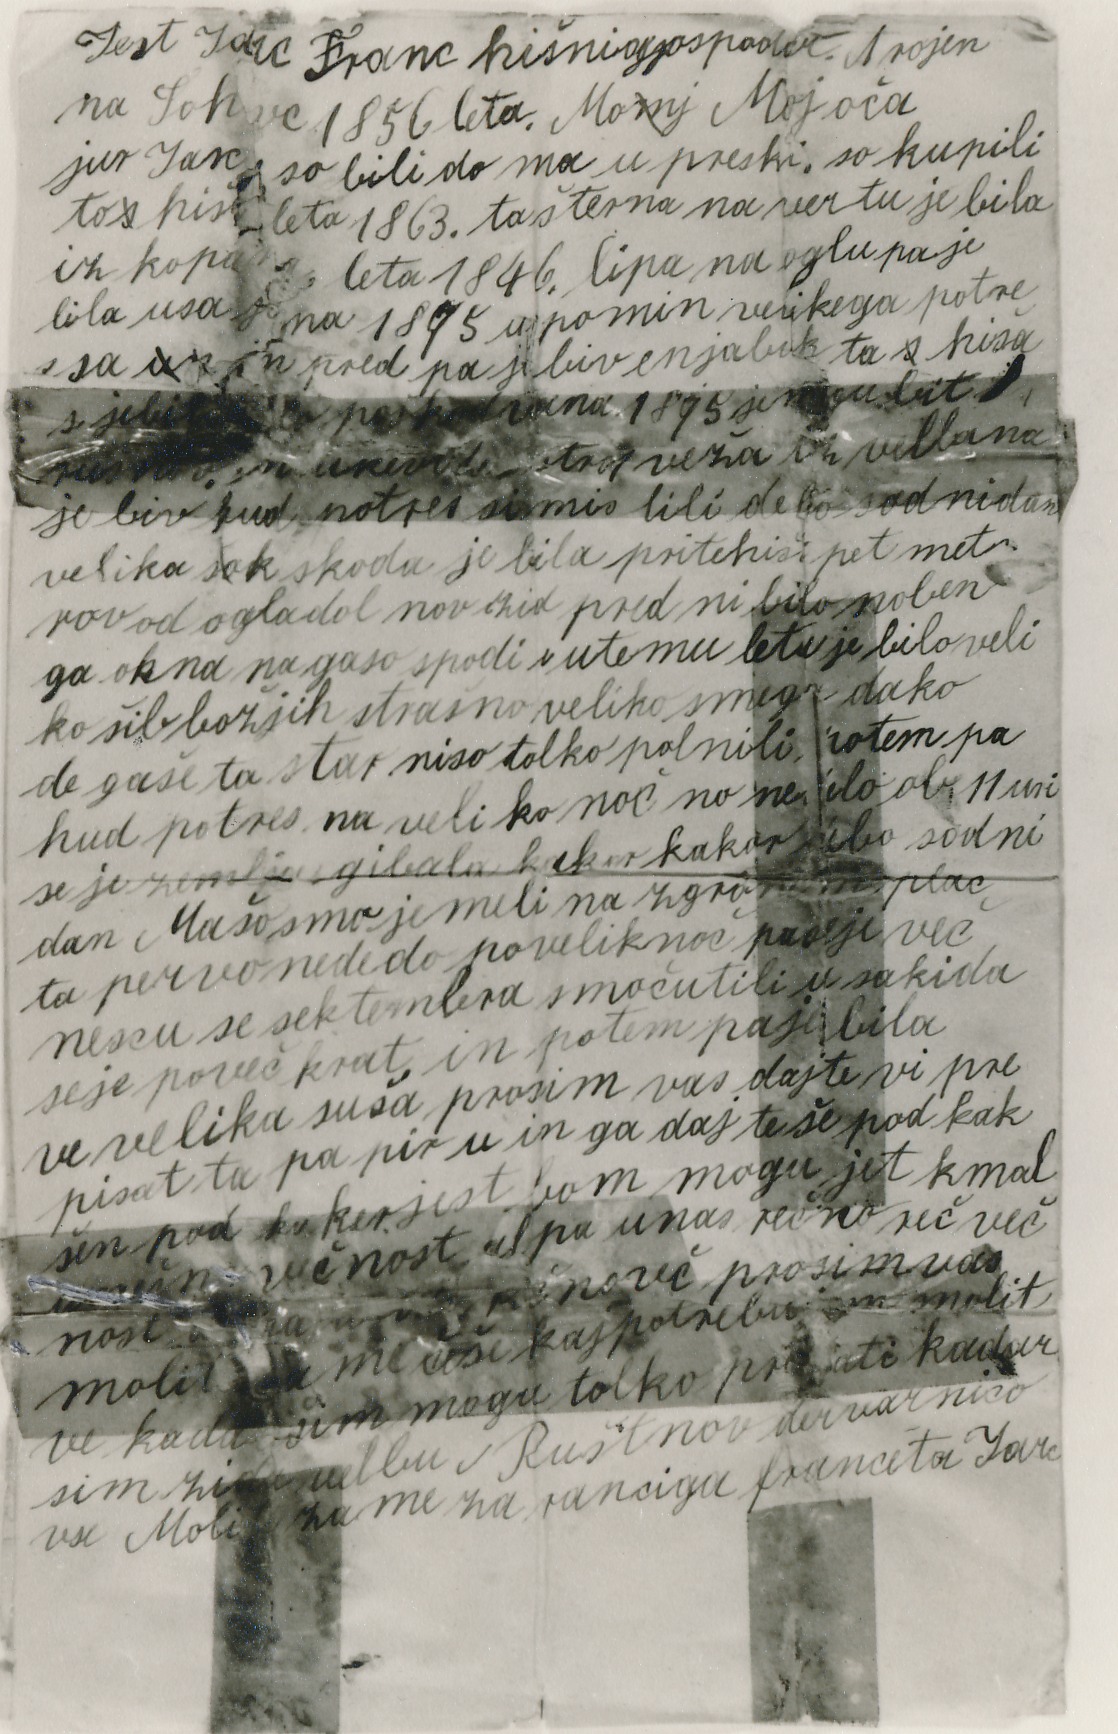 Jest Jarc Franc hišni gospodar. Nrojen
na Soh vc 1856 leta. Moj oča
jur Jarc, so bili do ma u preski. so kupili
to hiš leta 1863. ta šterna na vertu je bila
iz kopa leta 1846. lipa na oglu pa je
bila usa na 1895 u pomin velikega potre
sa in pred pa je biv en jabuk ta hiša
s je bila poškodvana 1895 je mogu bit
veža iz vellana
je biv hud potres si mis lili de bo sodni dan
velika škoda je bila pri te hiš pet met
rov od ogla dol nov zid pred ni bilo noben
ga okna na gaso spodi u temu letu je bilo veli
ko šib božjih strašno veliko snega dako
de gaše ta star niso tolko polnili. potem pa
hud potres na veliko noč no nedilo ob 11 uri
se je zemlja gibala kakor kakor bo sodni
dan Mašo smo jemeli na zgrajnem plac
ta pervo nededo po velik noč pa se je več
nescu se sektembra smo čutili u saki da
se je po več krat, in potem pa je bila
ve velika suša prosim vas dajte vi pre
pisat ta pa pir u in ga daj te še pod kak
šen pod ker jest bom mogu jet kmal
večnost al pa u nas rečno reč več
nost noveč prosim vas
molit za me če še kaj potrebujem molit
ve kada sim mogu tolko pre kadar
sim zida vellbu Rušt nov dervarnico
vse Molit za me za ranciga franceta Jarc